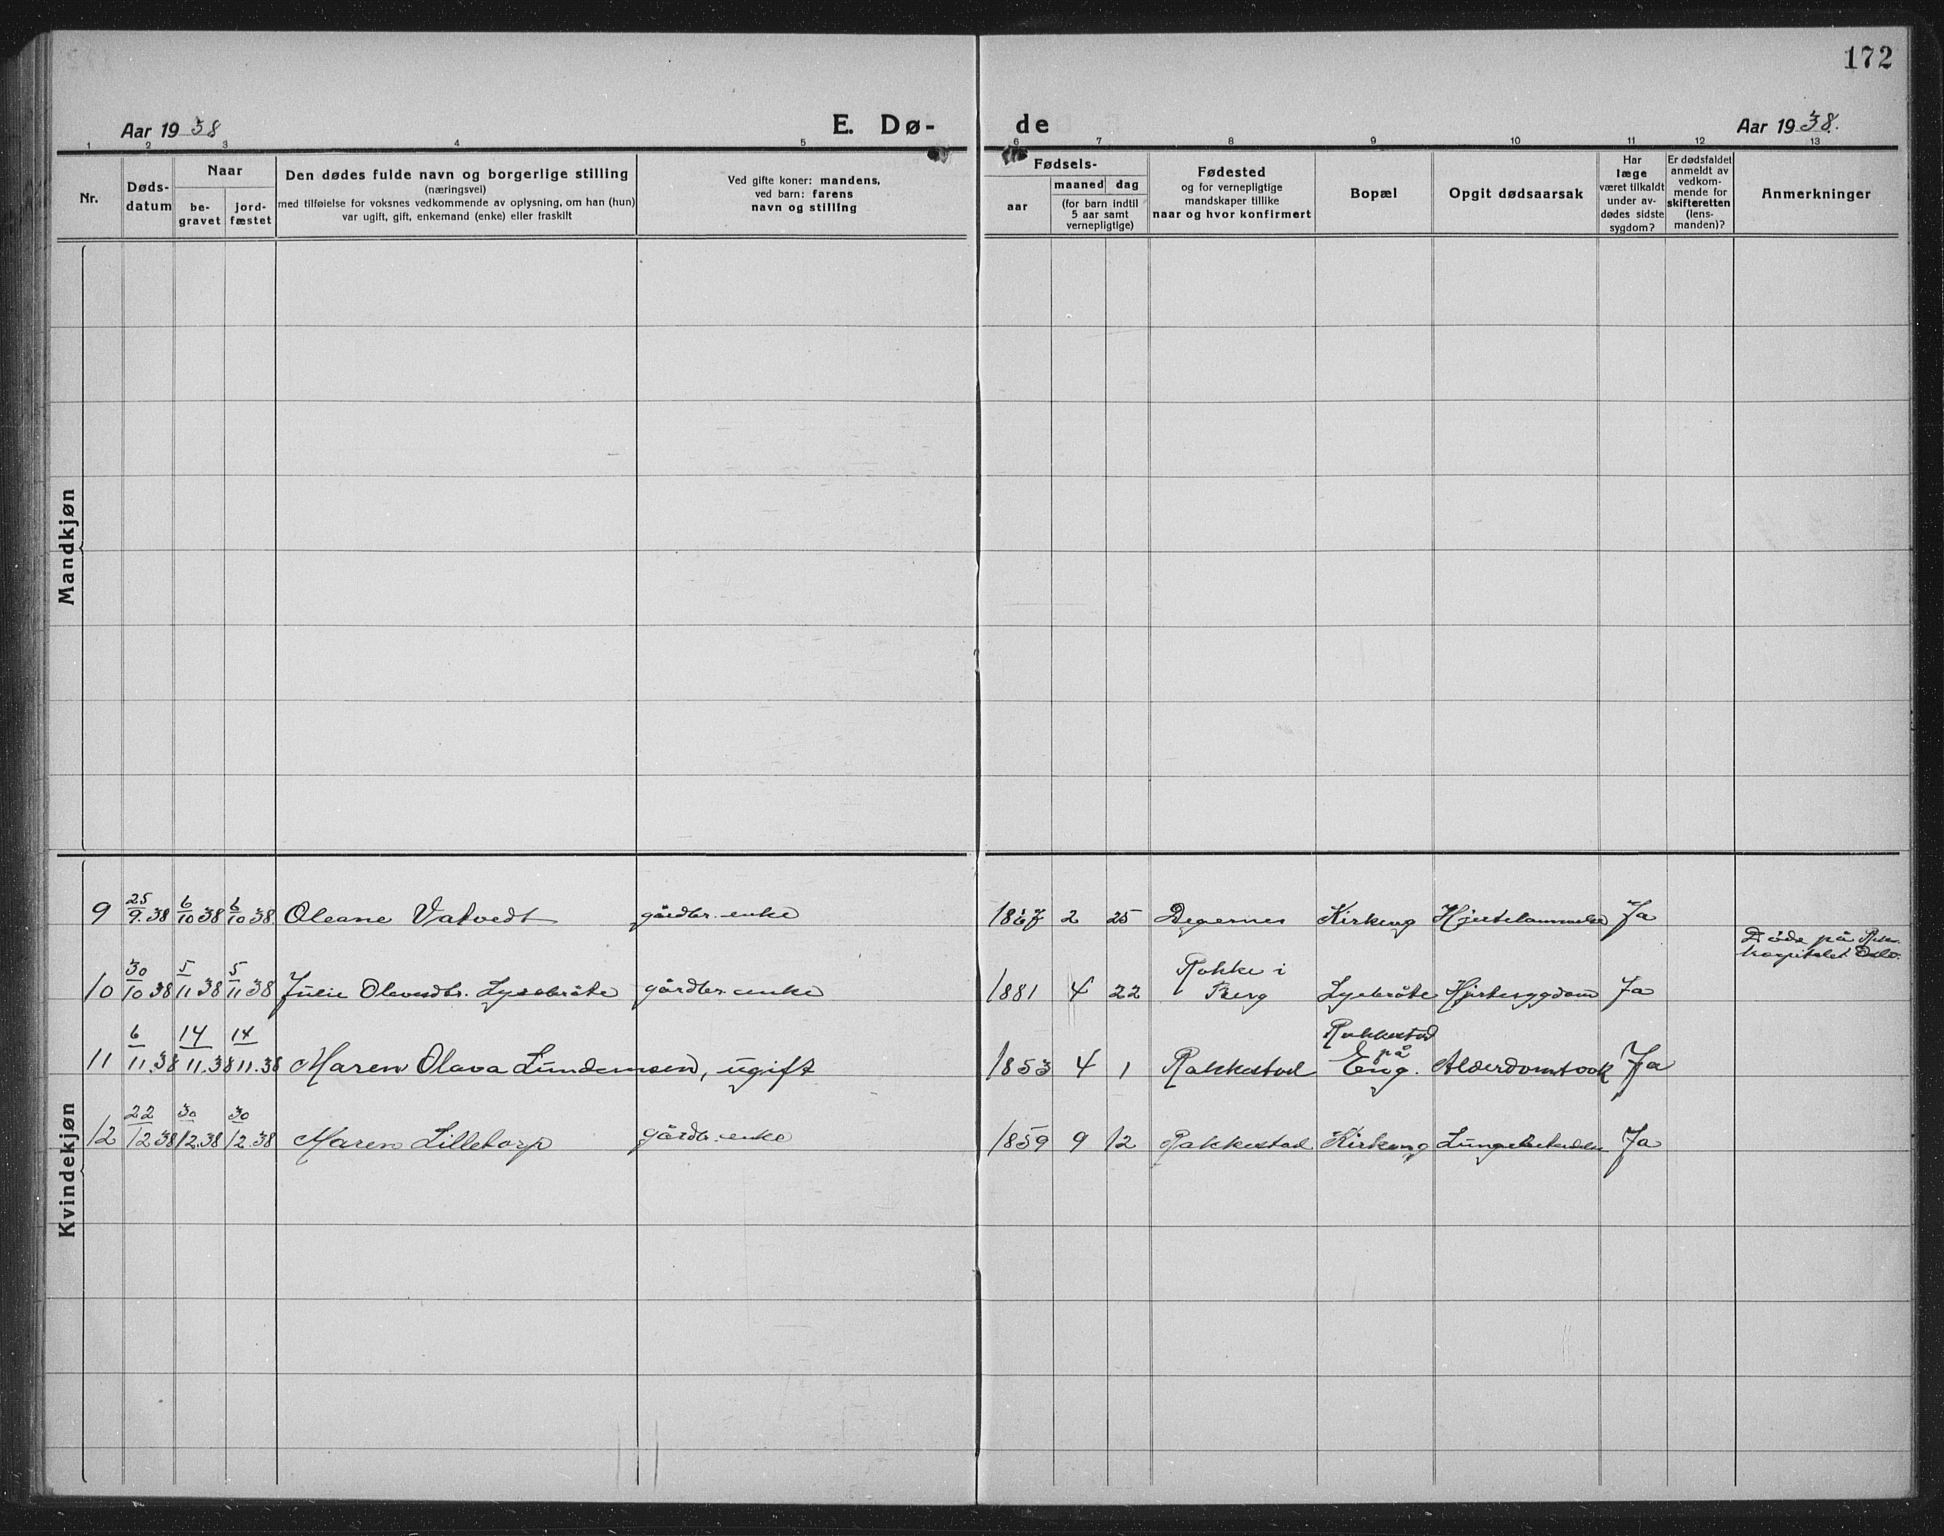 172
Aar 1938
E. Dø-
de
Aar 1938.
1 2 3 4 5 6 7 8 9 10 11 12 13
Nr.
Døds-
datum
Naar
be-
gravet
jord-
fæstet
Den dødes fulde navn og borgerlige stilling
(næringsvei)
med tilføielse for voksnes vedkommende av oplysning, om han (hun)
var ugift, gift, enkemand (enke) eller fraskilt
Ved gifte koner: mandens,
ved barn: farens
navn og stilling
Fødsels-
aar
maaned dag
(for barn indtil
5 aar samt
vernepligtige)
Fødested
og for vernepligtige
mandskaper tillike
naar og hvor konfirmert
Bopæl
Opgit dødsaarsak
Har
læge
været tilkaldt
under av-
dødes sidste
sygdom?
Er dødsfaldet
anmeldt av
vedkom-
mende for
skifteretten
(lens-
manden)?
Anmerkninger
Mandkjøn
Kvindekjøn
9 25/9.38 6/10 38 6/10 38. Oleane Vatvedt gårdbr. enke 2 25 Degernes Kirkeng Hjertelammelse Ja
Døde på Riks-
hospitalet Oslo.
10 30/10 38 5/11 38 5/11 38 Julie Olavsdtr. Lysebråte gårdbr. enke 1881 4 22 Rokke i
Berg Lysebråte Hjertesygdom Ja
11 6/11.38 14/11.38 14/11.38 Maren Olava Lundemsen, ugift 1853 4 1 Rakkestad Rakkestad
på
Eng. Alderdomstook Ja
12 22/12 38 30/12.38 30/12.38 Maren Lilletorp gårdbr. enke 1859 9 12 Rakkestad Kirkeng Ja